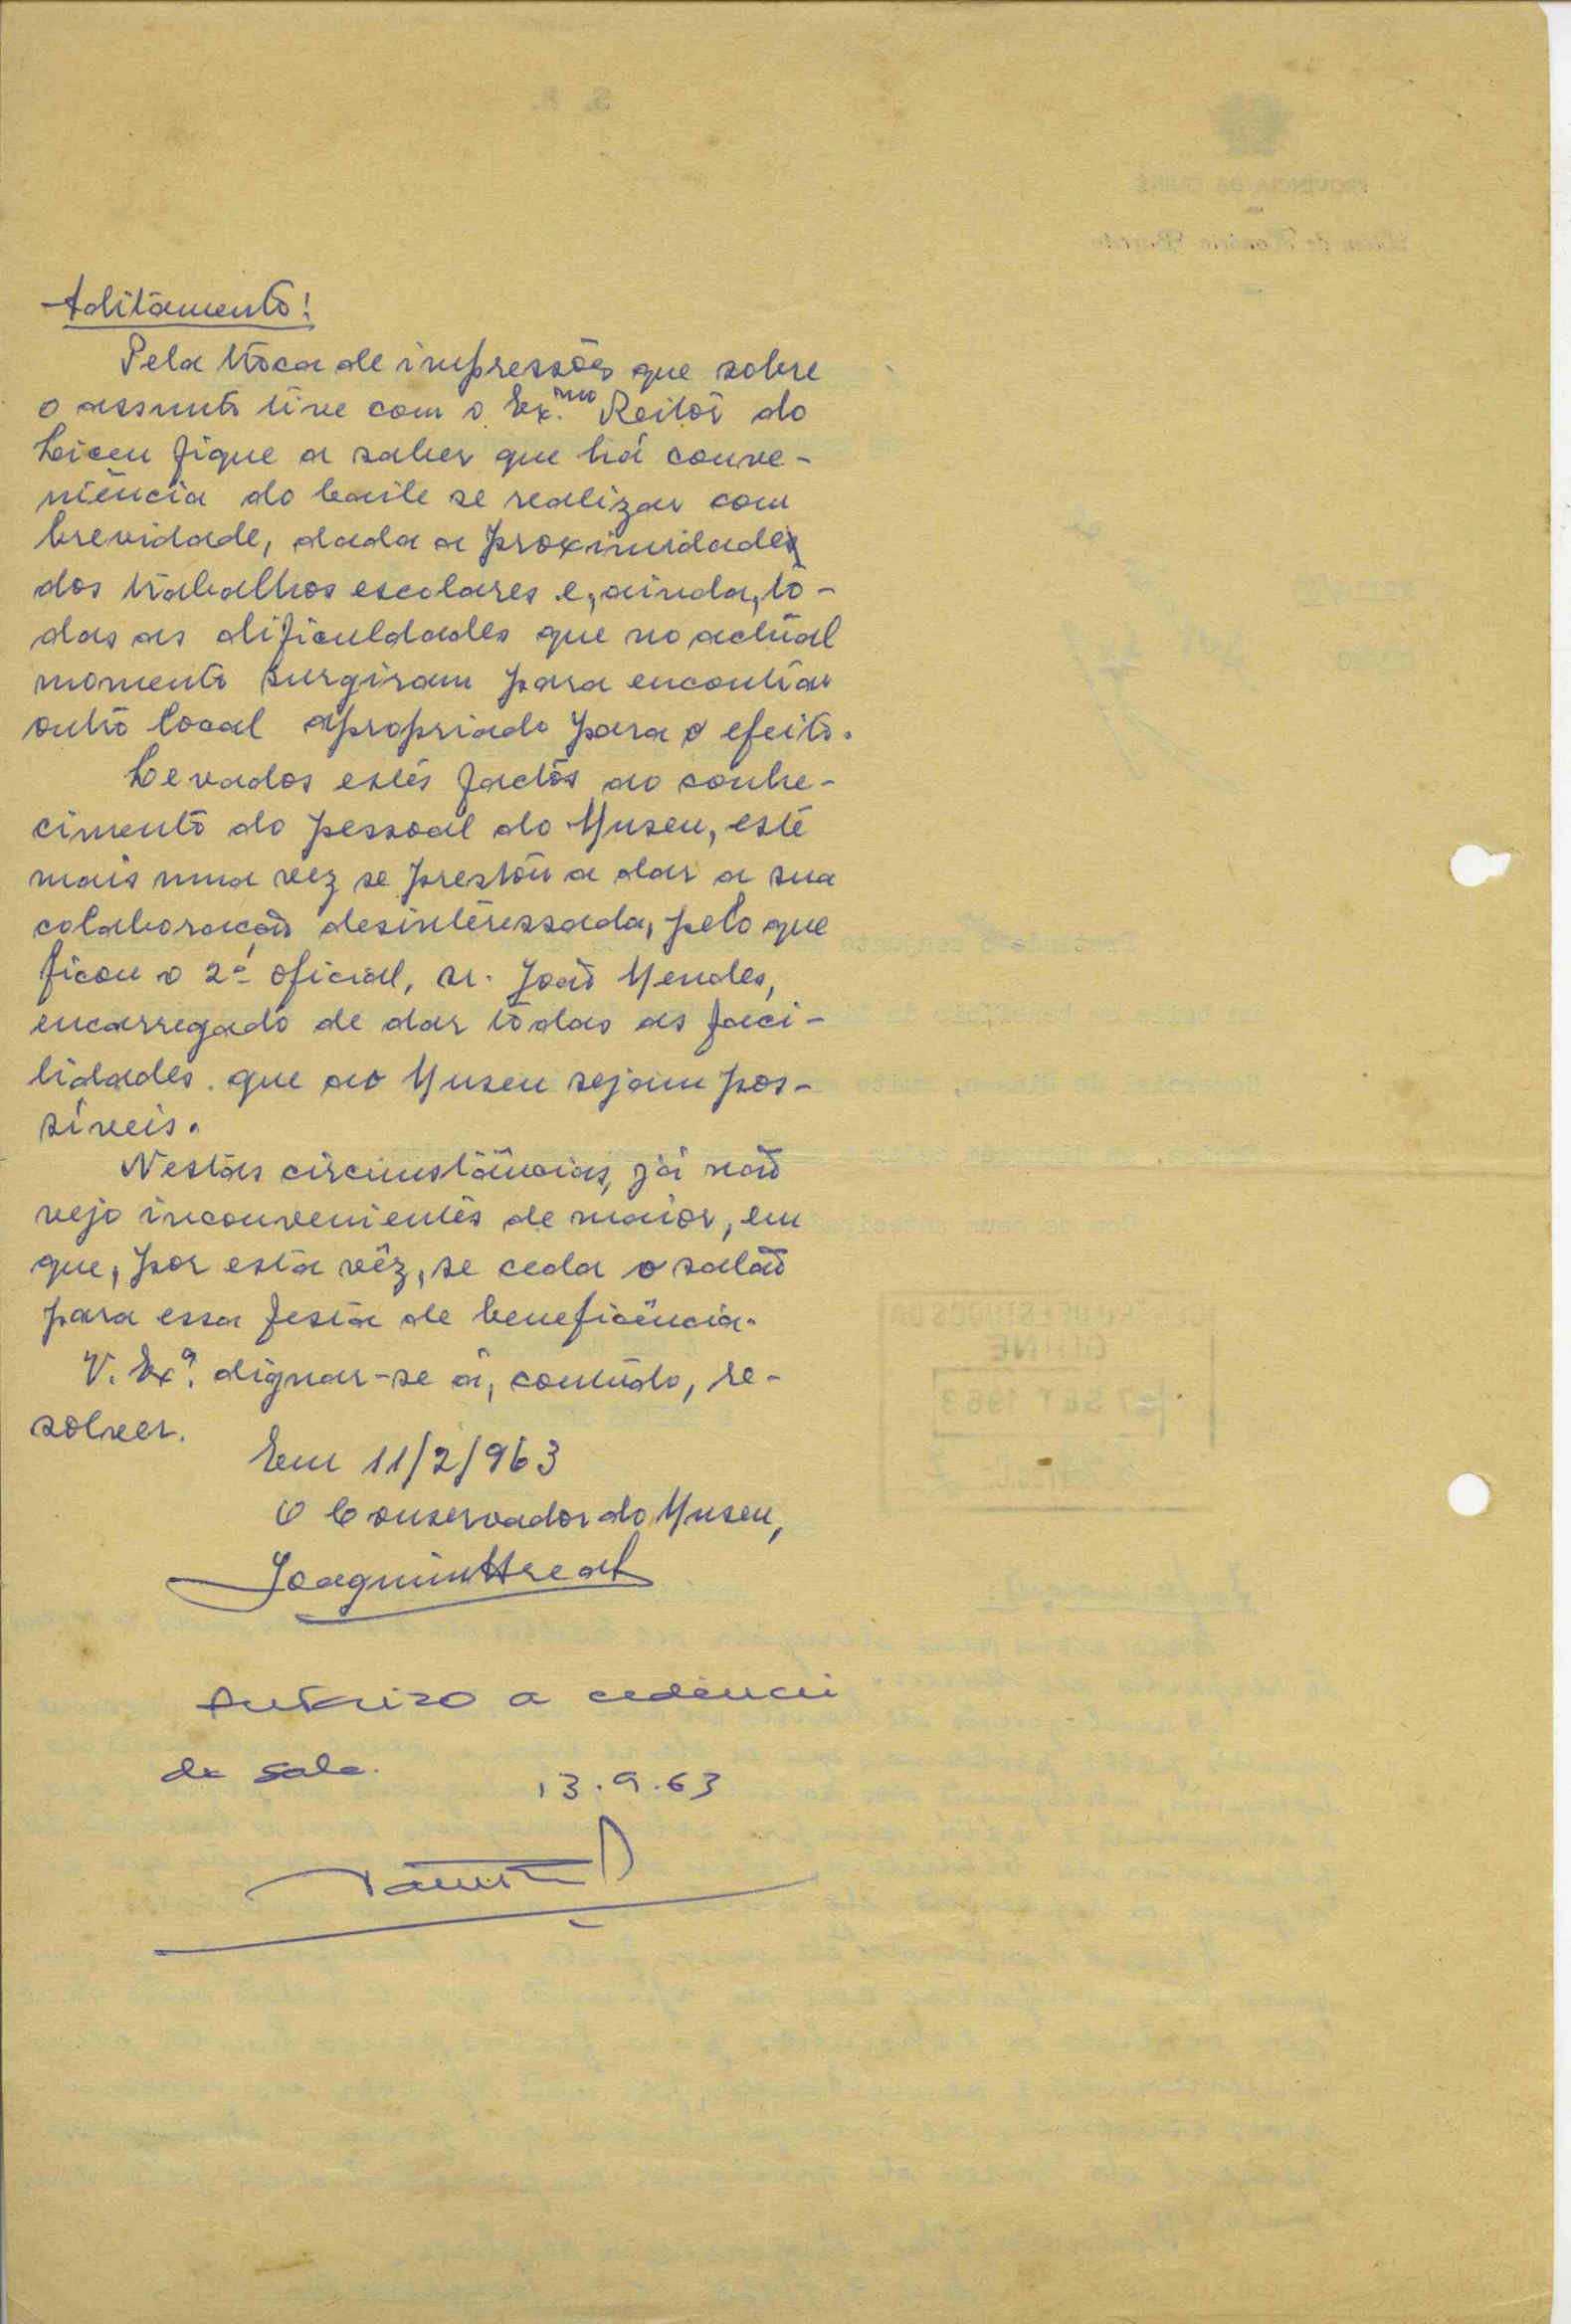 Aditamento:
Pela troca de impressões que sobre
o assunto tive com o Ex.mo Reitor do
Liceu fiquei a saber que há conve-
niência do baile se realizar com
brevidade, dada a proximidade
dos trabalhos escolares e, ainda, tô-
das as dificuldades que no actual
momento surgiram para encontrar
outro local apropriado para o efeito.
Levados estes factos ao conhe-
cimento do pessoal do Museu, este
mais uma vez se prestou a dar a sua
colaboração desinteressada, pelo que
ficou o 2º oficial, sr. João Mendes,
encarregado de dar tôdas as faci-
lidades que ao Museu sejam pos-
síveis.
Nestas circunstâncias, já não
vejo inconvenientes de maior, em
que, por esta vêz, se ceda o salão
para essa festa de beneficência.
V. Exª. dignar-se á, contudo, re-
solver.
Em 11/2/963
O Conservador do Museu,
Joaquim Areal
Autorizo a cedência
da sala.
13.9.63